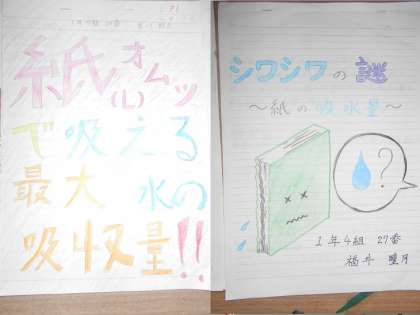 紙オムツ
(L)
で吸える
最大 水の
吸収量!!
シワシワの謎
〜紙の吸水量〜
?
1年4組 27番
福井